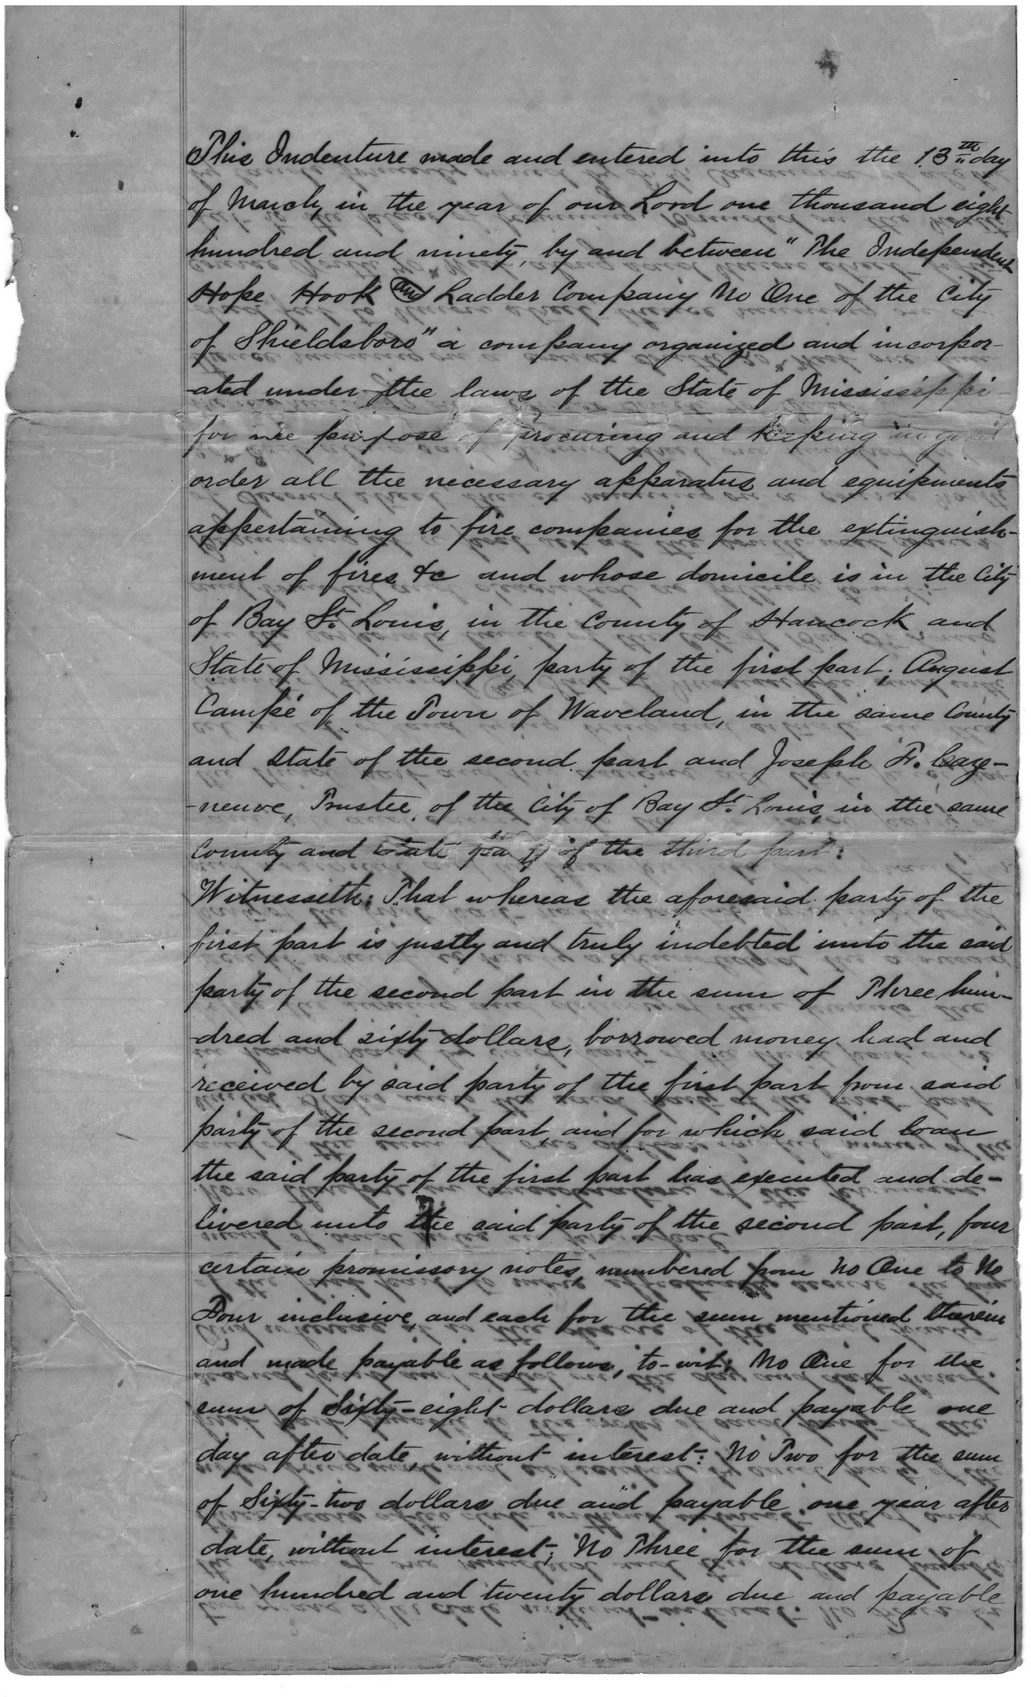 This Indenture made and entered into this the 13th day
of March, in the year of our Lord one thousand eight
hundred and ninety, by and between "The Independent
Hope Hook and Ladder Company No One of the City
of Shieldsboro" a company organized and incorpor-
-ated under the laws of the State of Mississippi
for the purpose of procuring and keeping in good
order all the necessary apparatus and equipments
appertaining to fire companies for the extinguish-
ment of fires &c and whose domicile is in the City
of Bay St. Louis, in the County of Hancock and
State of Mississippi, party of the first part; August
Campé of the Town of Waveland, in the same County
and State of the second part and Joseph F. Caze-
-neuve, Trustee, of the City of Bay St. Louis, in the same
County and State party of the third part:
Witnesseth: That whereas the aforesaid party of the
first part is justly and truly indebted unto the said
party of the second part in the sum of Three hun-
-dred and sixty dollars, borrowed money had and
received by said party of the first part from said
party of the second part, and for which said loan
the said party of the first part has executed and de-
livered unto the said party of the second part, four
certain promissory notes, numbered from No One to No
Four inclusive, and each for the sum mentioned therein
and made payable as follows, to-wit; No One for the
sum of Sixty-eight dollars due and payable one
day after date, without interest; No Two for the sum
of Sixty-two dollars due and payable one year after
date, without interest; No Three for the sum of
one hundred and twenty dollars due and payable